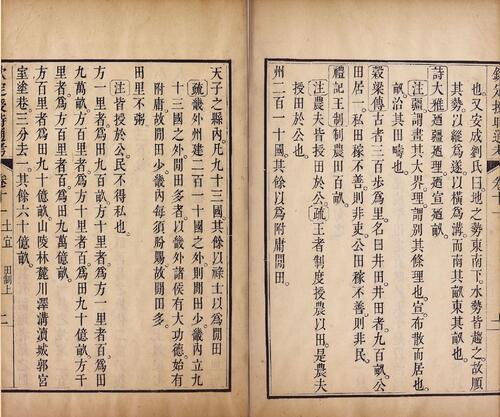 欽定授時通考
也。又安成劉氏曰。地之勢東南下。水勢皆趨之。故順
其勢。以縱爲遂。以橫爲溝。而南其畝。東其畝也。
詩大雅廼疆廼理。廼宣廼畝。
注疆謂畫其大界。理謂別其條理也。宣。布散而居也。
畝治其田疇也。
穀梁傳古者三百步爲里。名曰井田。井田者。九百畝。公
田居一。私田稼不善。則非吏。公田稼不善。則非民。
禮記王制制農田百畝。
注農夫皆授田於公。疏王者制度。授農以田。是農夫
授田於公也。
州二百一十國。其餘以爲附庸閒田。
天子之縣內。凡九十三國。其餘以祿士。以爲閒田。
疏畿外州建二百一十國之外。則閒田少。畿內立九
十三國之外。閒田多者。以畿外諸侯有大功德。始有
附庸。故閒田少。畿內每須朌賜。故閒田多。
田里不粥。
注皆授於公。民不得私也。
方一里者。爲田九百畝。方十里者。爲方一里者百。爲田
九萬畝。方百里者。爲方十里者百。爲田九十億畝。方千
里者。爲方百里者百。爲田九萬億畝。
方百里者。爲田九十億畝。山陵林麓川澤溝瀆城郭宮
室塗巷。三分去一。其餘六十億畝。
欽定授時通考 卷十一 土宜 田制上 二